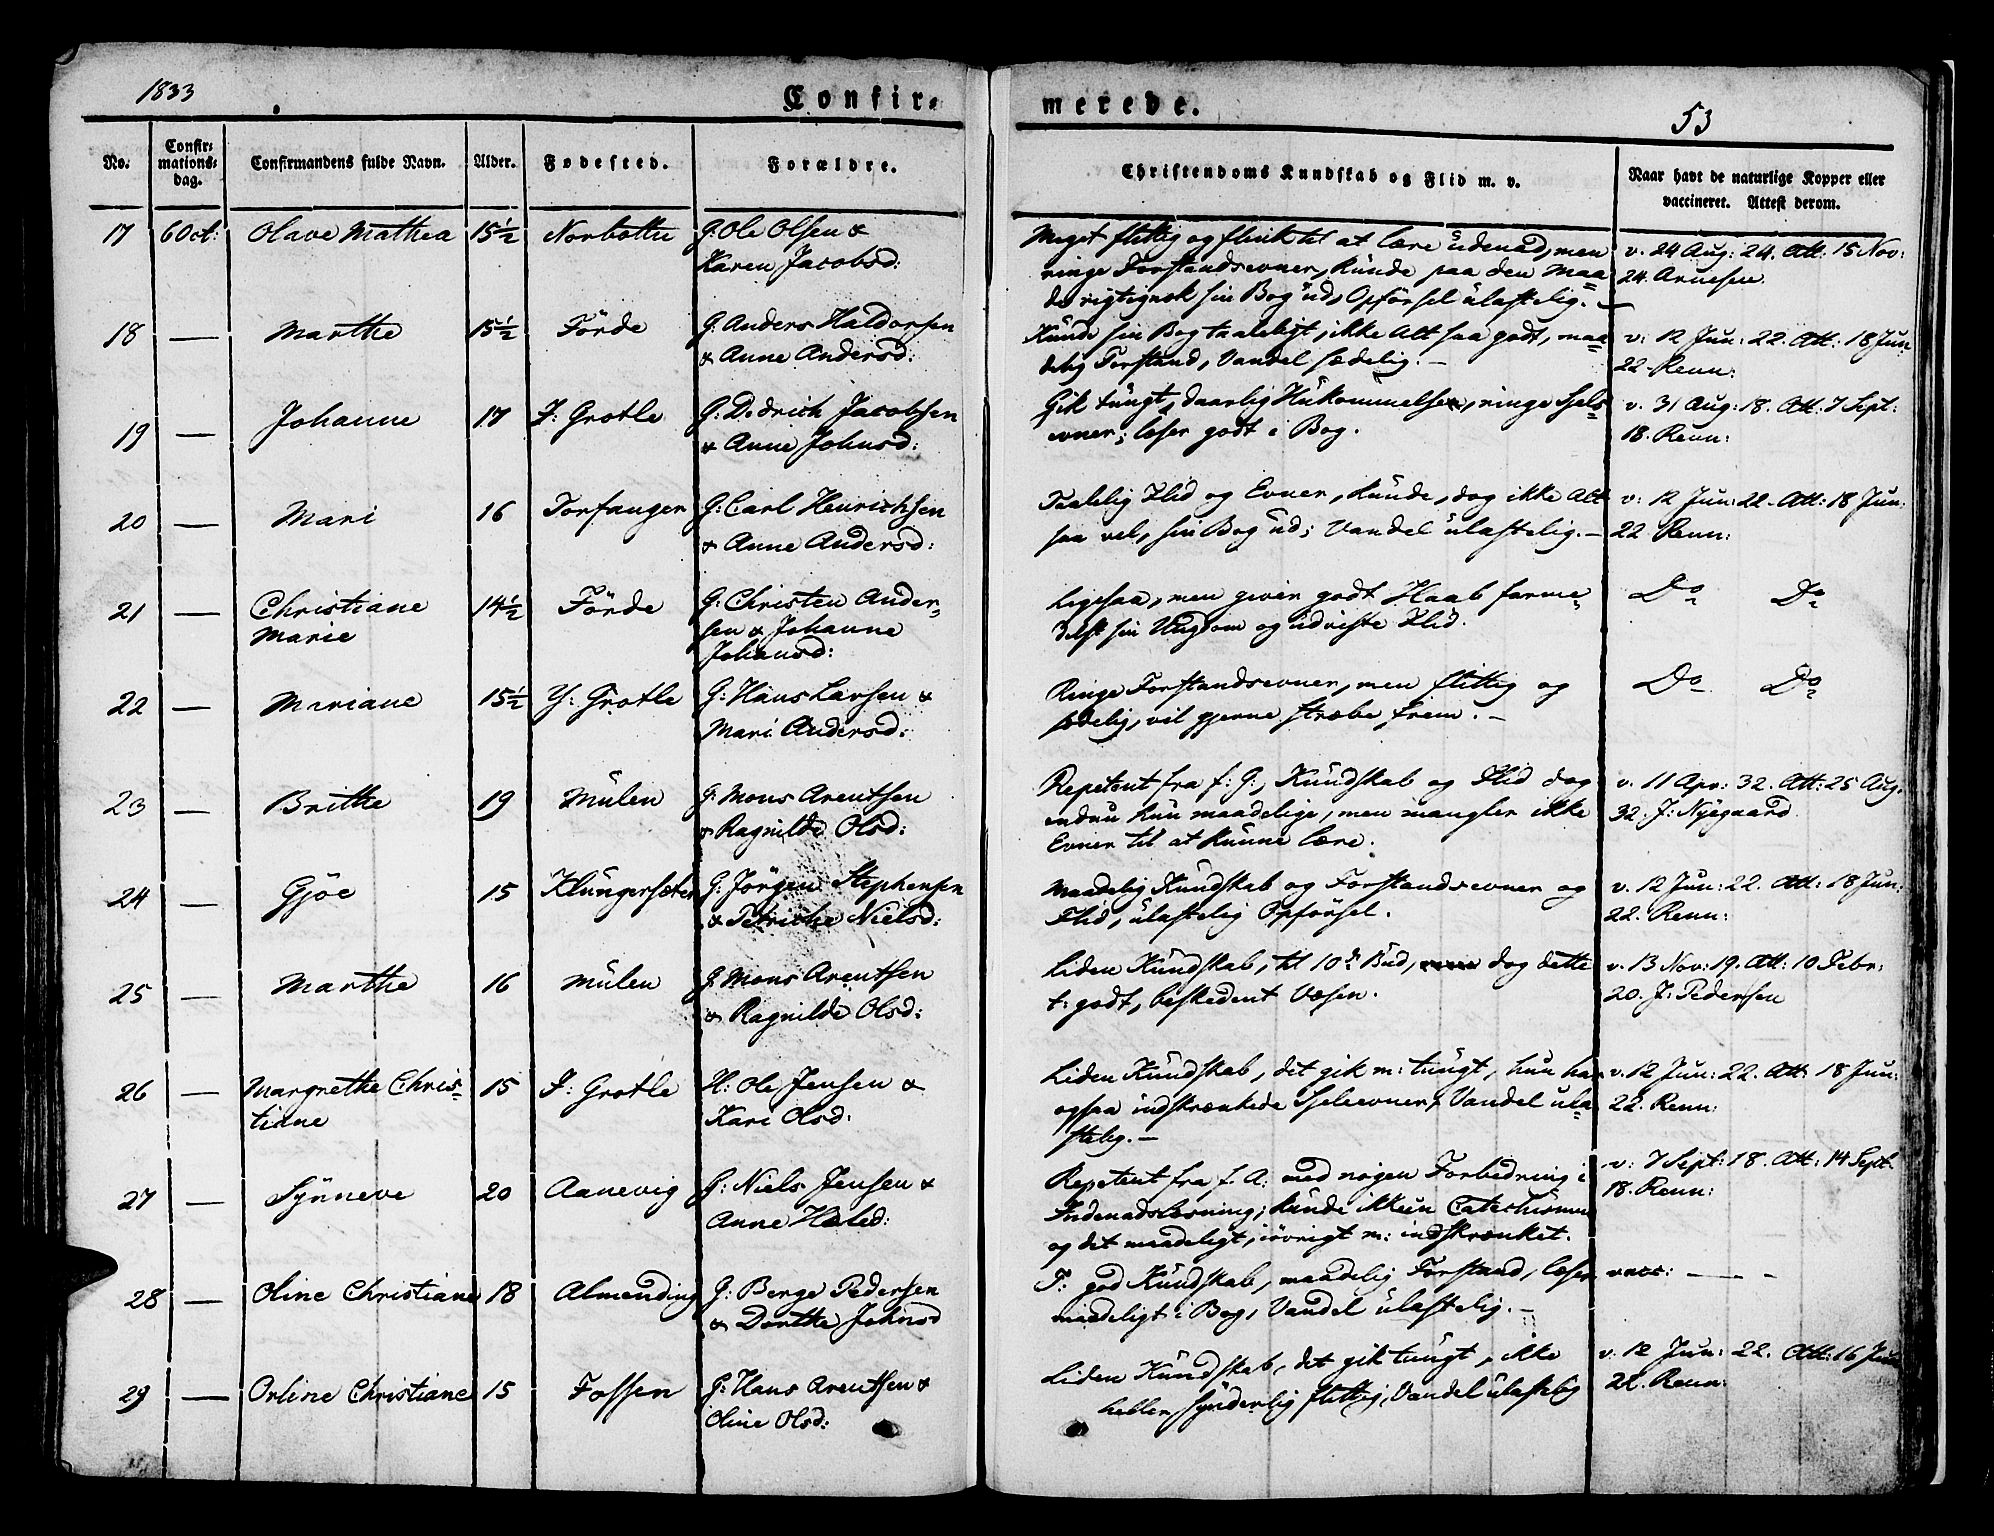 1833
Confir-
merede.
53
No.
Confir-
mations-
dag.
Confirmandens fulde Navn.
Alder.
Fødested.
Forældre.
Christendoms Kundskab og Flid m. v.
Naar havt de naturlige Kopper eller
vaccineret. Attest derom.
17 6 Oct: Olave Mathea 15½ Norbotte G: Ole Olsen &
Karen Jacobsd:
Meget flittig og flink til at lære udenad, men
ringe Forstandsevner, kunde paa den maa=
de rigtignok sin Bog ud, Opförsel ulastelig. –
v. 24 Aug: 24. Att: 15 Nov:
24. Arnesen.
18 — Marthe 15½ Förde G: Anders Haldorsen
& Anne Andersd:
Kunde sin Bog taaleligt, ikke Alt saa godt, maa=
delig Forstand, Vandel sædelig. –
v: 12 Jun: 22. Att: 18 Jun:
22. Renn:
19 — Johanne 17 J: Grotle G: Dedrich Jacobsen
& Anne Johnsd:
Gik tungt, daarlig Hukommelse, ringe Sjels=
evner; læser godt i Bog.
v. 31 Aug: 18. Att. 7 Sept:
18. Renn:
20 — Mari 16 Torfanger G: Carl Henrichsen
& Anne Andersd:
Taalelig Flid og Evner, kunde, dog ikke Alt
saa vel, sin Bog ud; Vandel ulastelig. –
v: 12 Jun: 22. Att: 18 Jun:
22 Renn:
21 — Christiane
Marie 14½ Förde G: Christen Ander=
sen & Johanne
Johansd:
Ligesaa, men giver godt Haab forme=
delst sin Ungdom og udviste Flid.
Do Do
22 — Mariane 15½ Y: Grotle G: Hans Larsen &
Mari Andersd:
Ringe Forstandsevner, men flittig og
sædelig, vil gjerne stræbe frem. –
Do Do
23 — Brithe 19 Mülen G: Mons Arentsen
& Ragnilde Olsd:
Repetent fra f: G:, Kundskab og Flid dog
endnu kun maadelige, men mangler ikke
Evner til at kunne lære.
v. 11 Apr: 32. Att: 25 Aug.
32. J: Nygaard
24 — Gjöe 15 Klungersæter G: Jörgen Stephensen
& Petriche Nielsd:
Maadelig Kundskab og Forstandsevner og
Flid, ulastelig Opförsel.
v. 12 Jun: 22. Att: 18 Jun:
22. Renn:
25 — Marthe 16 Mülen G: Mons Arentsen
& Ragnilde Olsd:
Liden Kundskab, til 10de Bud, dog dette
t: godt, beskedent Væsen.
v. 13 Nov: 19. Att: 10 Febr:
20. J: Pedersen
26 — Margrethe Chris=
tiane 15 J: Grotle H: Ole Jensen &
Kari Olsd:
Liden Kundskab, det gik m: tungt, hun har
ogsaa indskrænkede Sjeleevner, Vandel ula=
stelig. –
v. 12 Jun: 22. Att: 18 Jun:
22. Renn:
27 — Synneve 20 Aanevig G: Niels Jensen &
Anne Halsd:
Repetent fra f. A: med nogen Forbedring i
Indenadslæsning; kunde ikkun Catechismus
og det maadeligt, iövrigt m: indskrænket.
v: 7 Sept: 18. Att: 14 Sept.
18. Renn:
28 — Oline Christiane 18 Almending G: Berge Pedersen
& Dorthe Johnsd
T: god Kundskab, maadelig Forstand, læser
maadeligt i Bog, Vandel ulastelig. –
vacc: — — –
29 — Orline Christiane 15 Fossen G: Hans Arentsen &
Oline Olsd:
Liden Kundskab, det gik tungt, ikke
heller synderlig flittig, Vandel ulastelig
v. 12 Jun: 22. Att: 16 Jun
22. Renn: